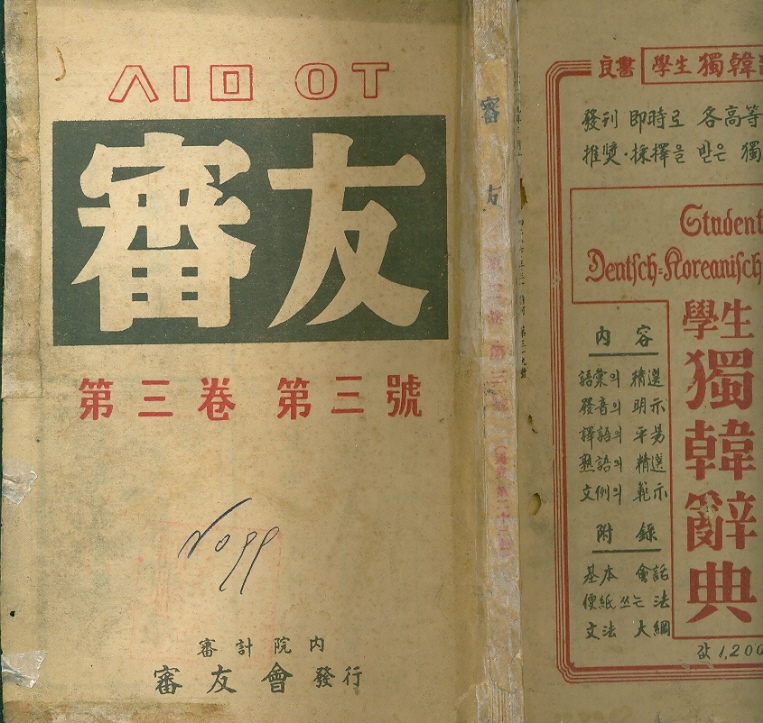 ㅅㅣㅁ ㅇㅜ
審友
第三卷 第三號
No 99
審計院內
審友會 發行
審友
良書 學生 獨韓
發刊 即時로 各高等
推奬·採擇을 받은 獨
Student
Deutsch=Koreanisch
學生
獨韓辭典
內容
語彙의 精選
發音의 明示
譯語의 平易
熟語의 精選
文例의 範示
附錄
基本 會話
便紙 쓰는 法
文法 大綱
값 1,200